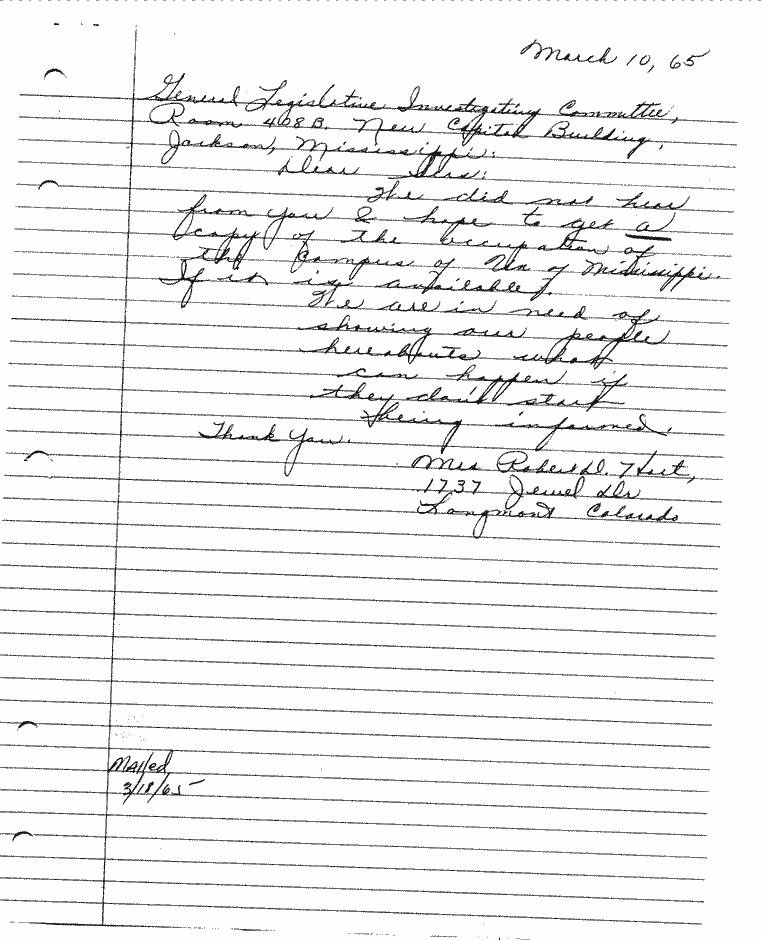 March 10, 65
General Legislative Investigating Committee,
Room 408B. New Capitol Building,
Jackson, Mississippi:
Dear Sirs:
We did not hear
from you & hope to get a
copy of the occupation of
the Campus of Un of Mississippi.
If it is available.
We are in need of
showing our people
hereabouts what
can happen if
they don't start
being informed.
Thank You.
Mrs Robert D. Hart,
1737 Jewel Dr
Longmont Colorado
Mailed
3/18/65